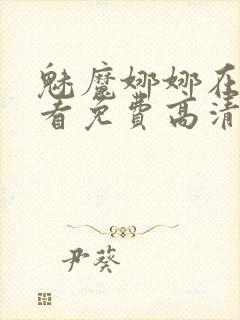 魅魔娜娜在
看免费高清
尹葵